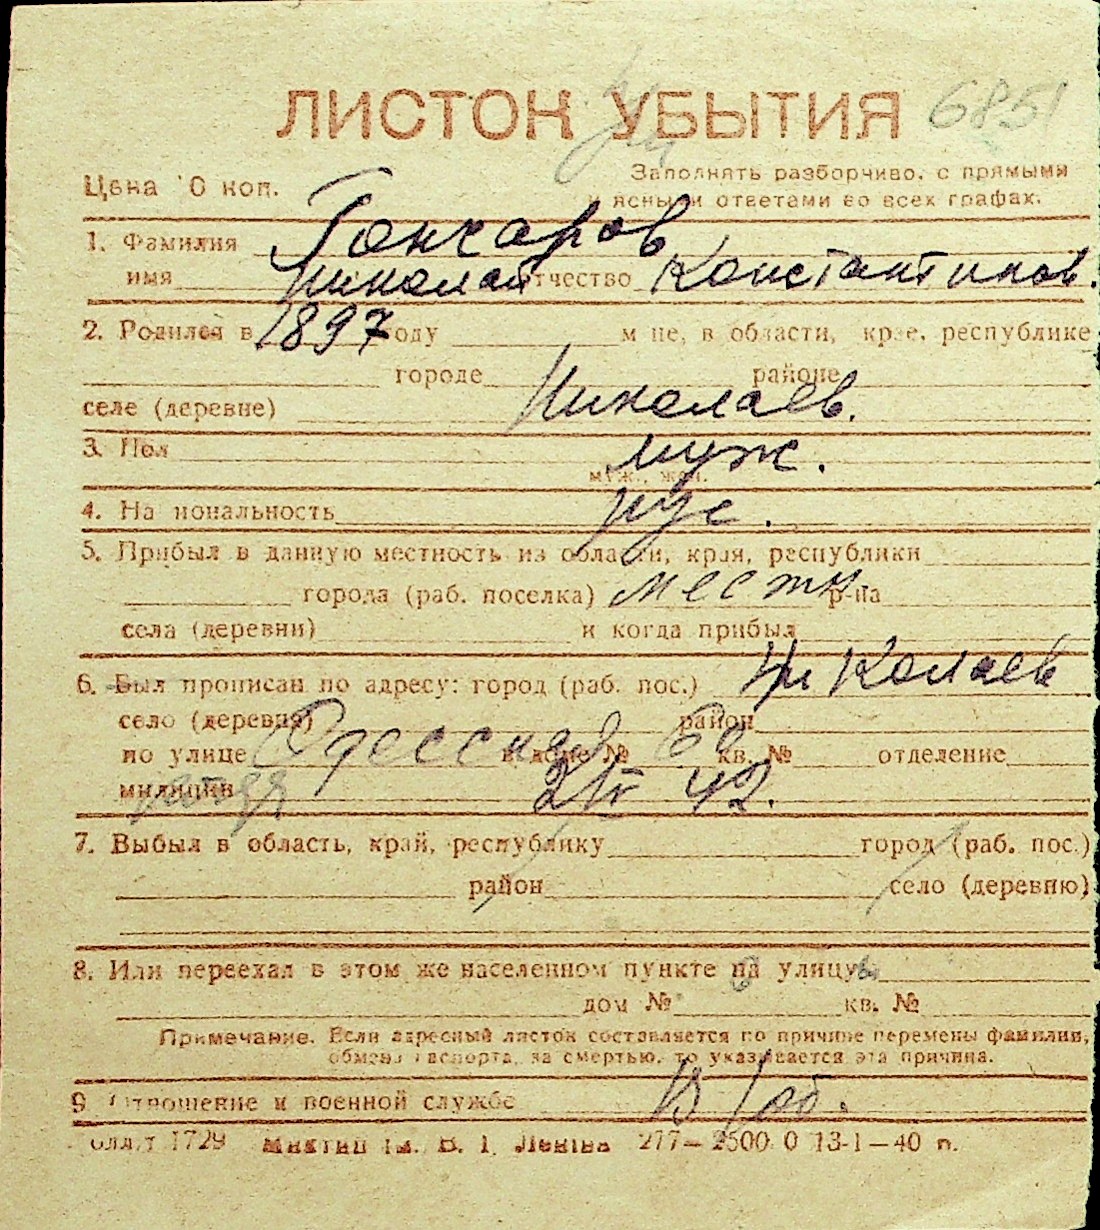 ЛИСТОК УБЫТИЯ 6851
Цена 10 коп. Заполнять разборчиво, с прямыми
и ясными ответами во всех графах.
1. Фамилия Гончаров
имя Николай отчество Константинов.
2. Родился в 1897 году м-це, в области, крае, республике
городе районе
селе (деревне) Николаев.
3. Пол муж.
муж., жен.
4. Национальность рус.
5. Прибыл в данную местность из области, края, республики
города (раб. поселка) местн. р-на
села (деревни) и когда прибыл
6. Был прописан по адресу: город (раб. пос.) Николаев
село (деревня) район
по улице Одесская в доме № 62 кв. № отделение
милиции 42.
7. Выбыл в область, край, республику город (раб. пос.)
район село (деревню)
8. Или переехал в этом же населенном пункте на улицу
дом № кв. №
Примечание. Если адресный листок составляется по причине перемены фамилии,
обмена паспорта, за смертью, то указывается эта причина.
9. Отношение к военной службе
1729 ім. В. І. Леніна 277—2500.0 13-1—40 п.